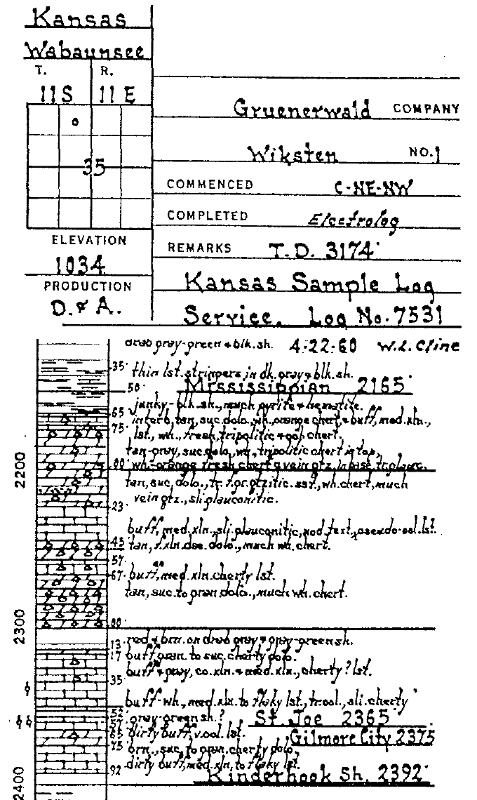 Kansas
Wabaunsee
T. R.
11S 11E
35
ELEVATION
1034
PRODUCTION
D. & A.
Gruenerwald COMPANY
Wiksten NO. 1
COMMENCED C-NE-NW
COMPLETED Electrolog
REMARKS T.D. 3174'
Kansas Sample Log
Service, Log No. 7531
drab gray-green & blk. sh. 4-22-60 W.L. Cline
35 thin lst. stringers in dk. gray & blk. sh.
50 Mississippian 2165'
junky blk. sh., much pyrite & hematite.
65 tan, suc. dolo., wh. orange chert & buff, med. xln.,
75 lst., wh., fresh, tripolitic & ool. chert,
tan-gray, suc. dolo., wh. tripolitic chert in top,
2200
wh.-orange fresh chert & vein qtz. in base tr. glauc.
tan, suc. dolo., tr. f. gr. qtzitic. sst., wh. chert, much
vein qtz., sli. glauconitic.
23
buff, med. xln. sli. glauconitic, nod. text., pseudo-ool. lst.
45 tan, f. xln. dolo., much wh. chert.
57
67 buff, med. xln. cherty lst.
tan, suc. to gran. dolo., much wh. chert.
2300
13 red & brn. or drab gray & gray-green sh.
17 buff gran. to suc. cherty dolo.
buff & gray, co. xln. & med. xln., cherty? lst.
35
buff wh., med. xln. to flaky lst., tr. ool., sli. cherty
52 gray-green sh.? St. Joe 2365
57 dirty buff, v. ool. lst. Gilmore City 2375
65
75 brn., suc. to gran. cherty dolo.
92 dirty buff, med. xln. to flaky lst.
Kinderhook Sh. 2392'
2400